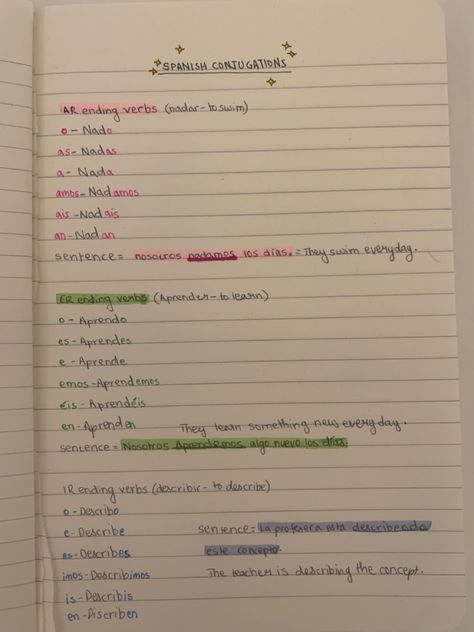 SPANISH CONJUGATIONS
AR ending verbs (nadar - to swim)
o - Nado
as - Nadas
a - Nada
amos - Nadamos
ais - Nadais
an - Nadan
sentence = nosotros nadamos los días. = They swim everyday.
ER ending verbs (Aprender - to learn)
o - Aprendo
es - Aprendes
e - Aprende
emos - Aprendemos
éis - Aprendéis
en - Aprenden
They learn something new everyday.
sentence = Nosotros Aprendemos algo nuevo los días.
IR ending verbs (describir - to describe)
o - Describo
e - Describe
es - Describes
imos - Describimos
is - Describis
en - Discriben
sentence = La profesera esta describenda
este concepto.
The teacher is describing the concept.